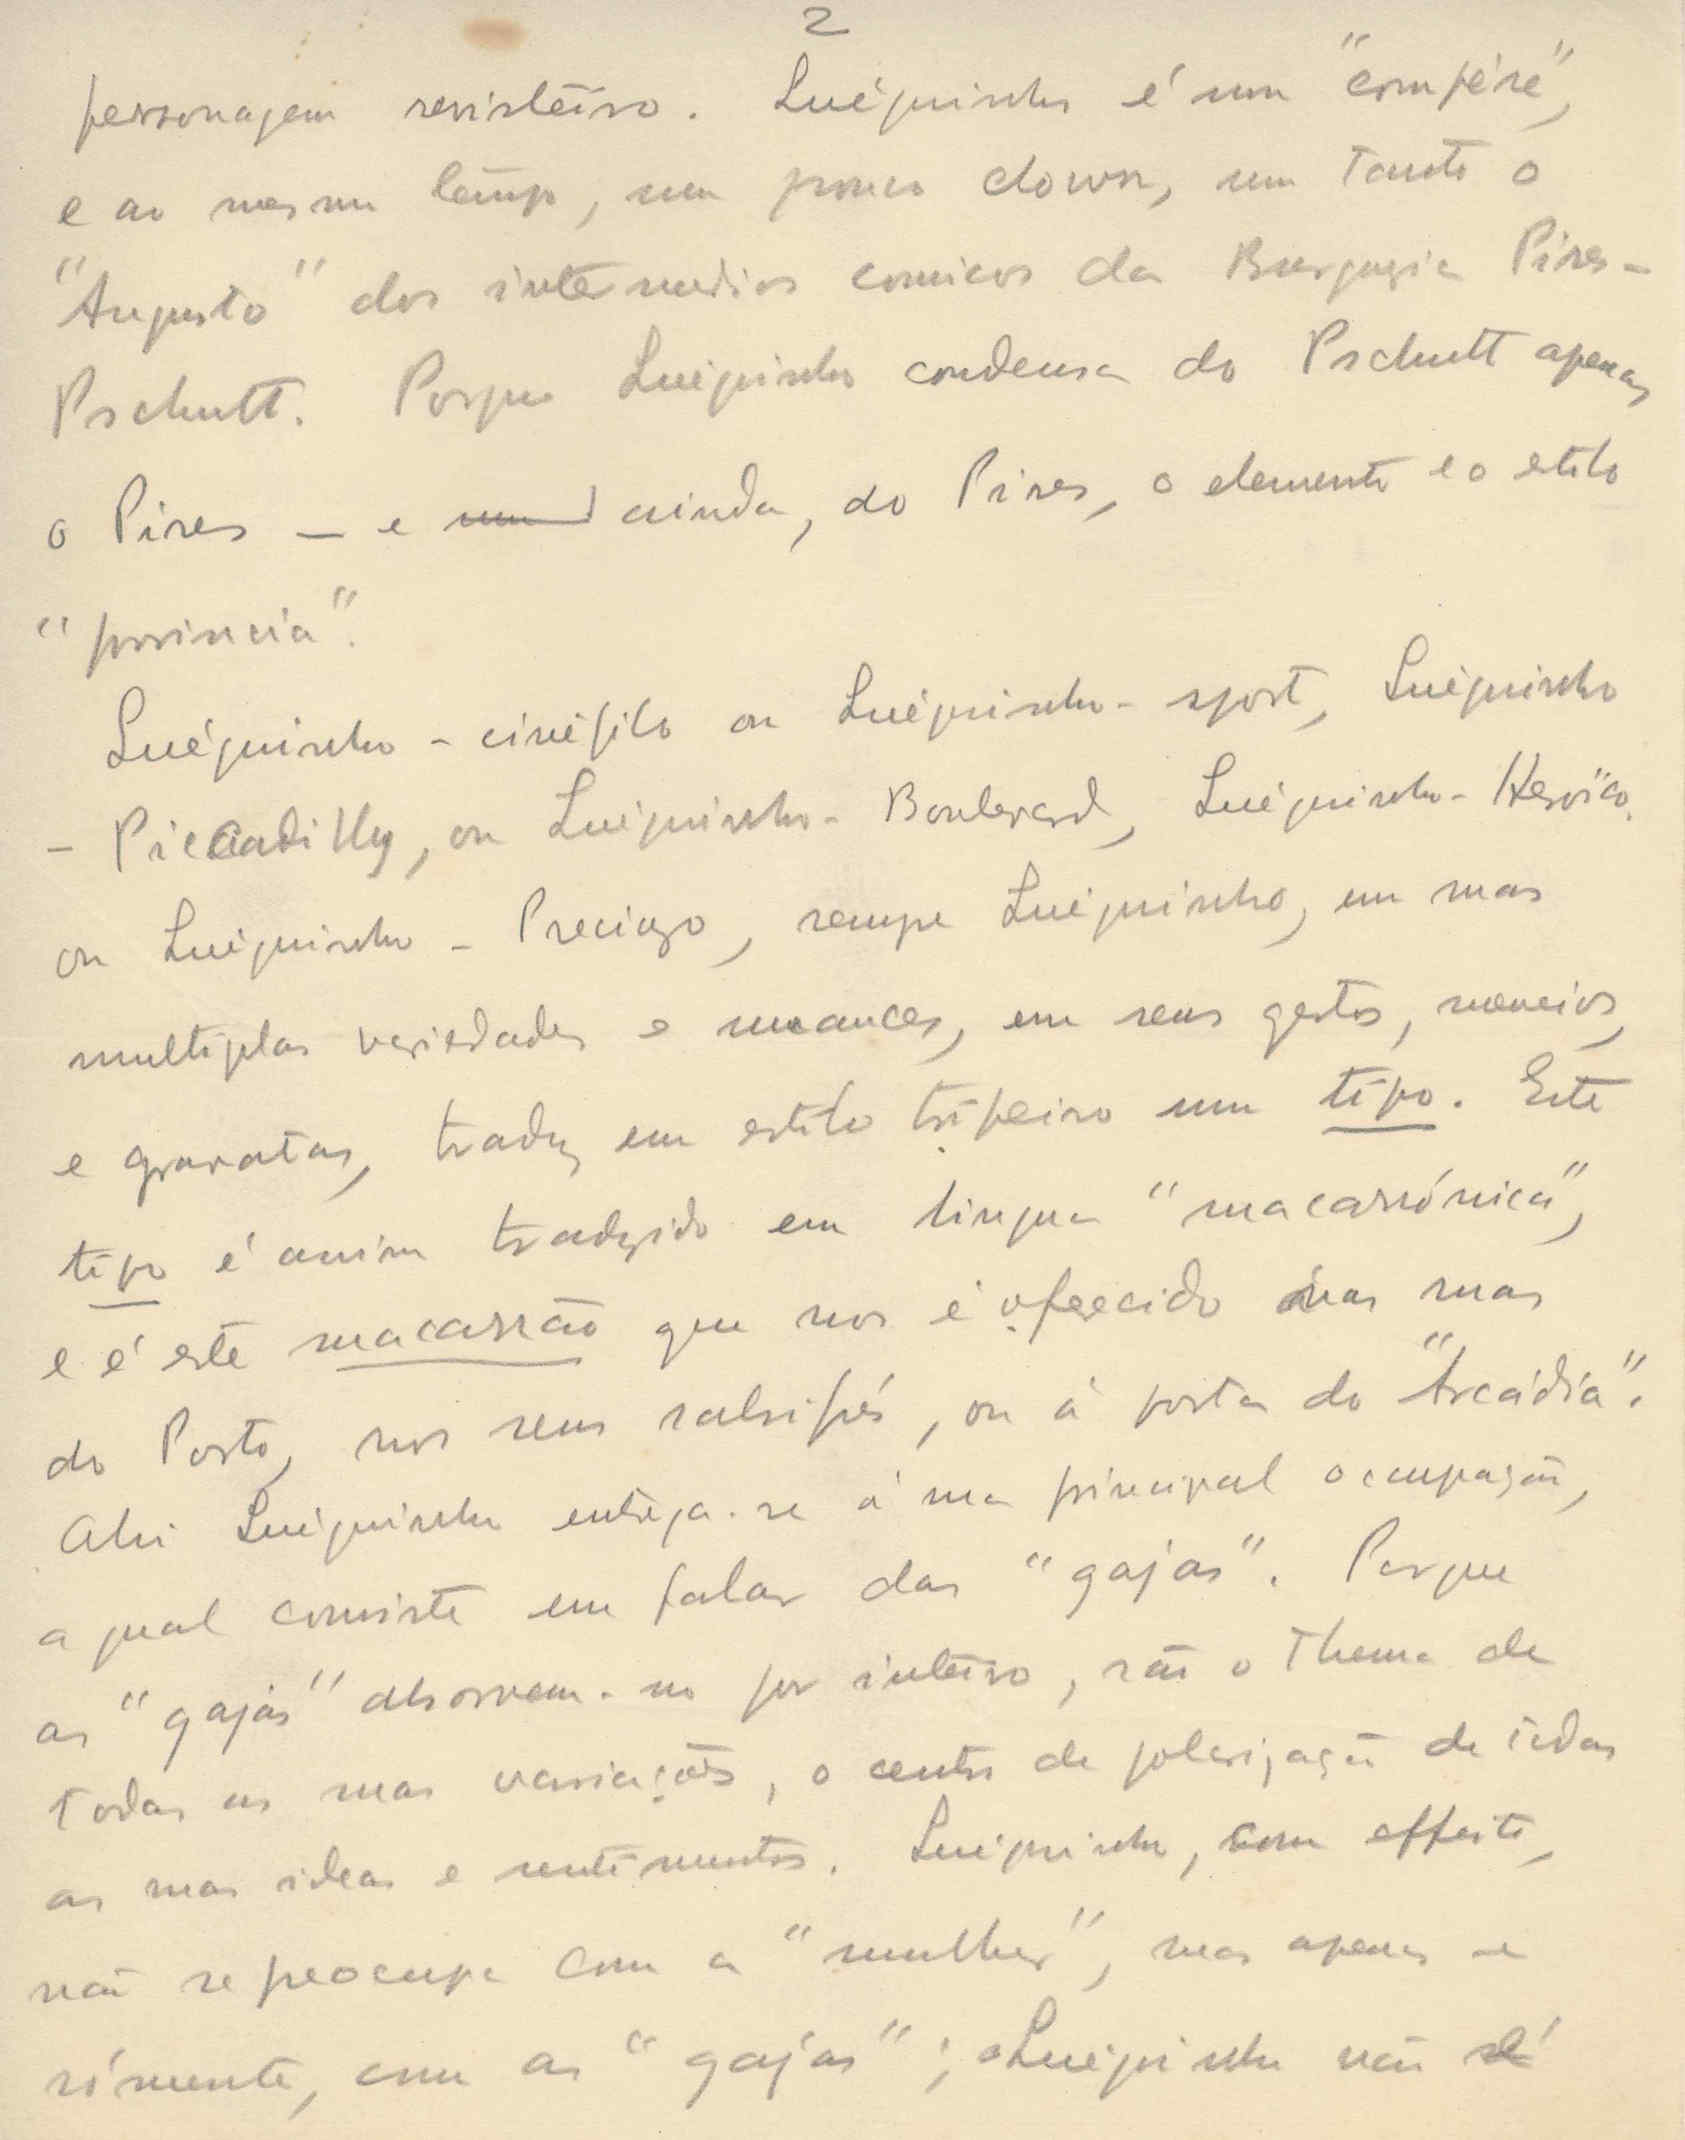 2
personagem revisteiro. Luéquinho é um "compére",
e ao mesmo tempo, um pouco clown, um tanto o
"Augusto" dos intermedios comicos da Burguezia Pires-
Pschutt. Porque Luéquinho condensa do Pschutt apenas
o Pires — e ainda, do Pires, o elemento e o estilo
"provincia".
Luéquinho - cinéfilo ou Luéquinho - sport, Luéquinho
- Piccadilly, ou Luéquinho - Boulevard, Luéquinho - Heroïco,
ou Luéquinho - Preciozo, sempre Luéquinho, em suas
multiplas variedades e nuances, em seus gestos, meneios,
e gravatas, traduz em estilo tripeiro um tipo. Este
tipo é assim traduzido em lingua "macarrónica",
e é este macarrão que nos é oferecido nas ruas
do Porto, nos seus salsifrés, ou á porta do "Arcádia".
Ahi Luéquinho entrega-se á sua principal occupação,
a qual consiste em falar das "gajas". Porque
as "gajas" absorvem-no por inteiro, são o thema de
todas as suas variações, o centro de polarização de todas
as suas ideas e sentimentos. Luéquinho, com effeito,
não se preocupa com a "mulher", mas apenas e
sómente, com as "gajas"; Luéquinho não